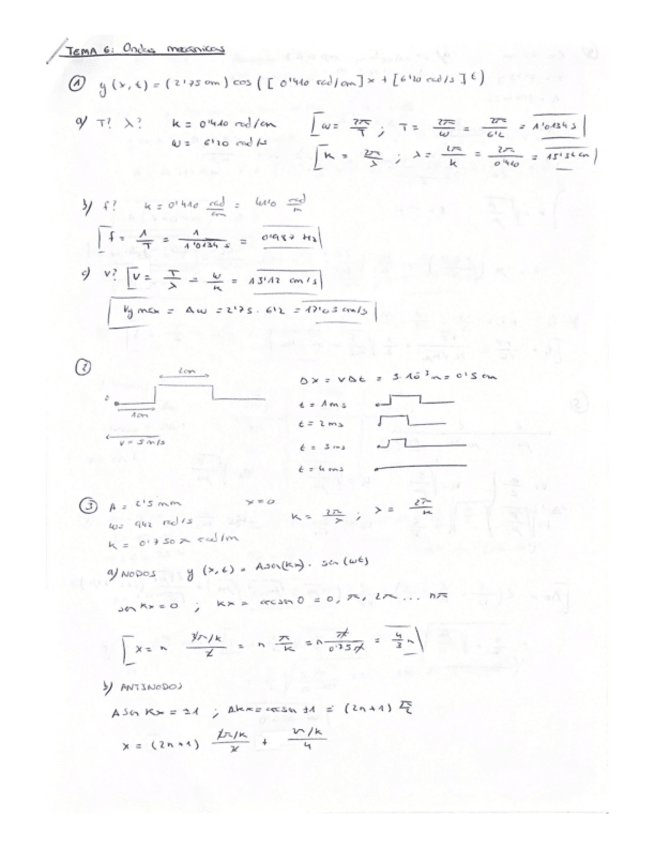 TEMA 6: Ondas mecánicas
① y(x,t) = (2'75 cm) cos ([0'410 rad/cm]x + [6'20 rad/s]t)
a) T? λ? k = 0'410 rad/cm [ω = 2π/T ; T = 2π/ω = 2π/6'2 = 1'0134 s]
ω = 6'20 rad/s [k = 2π/λ ; λ = 2π/k = 2π/0'410 = 15'32 cm]
b) f? k = 0'410 rad/cm = 41'0 rad/m
[f = 1/T = 1/1'0134 s = 0'987 Hz]
c) v? [v = T/λ = ω/k = 15'12 cm/s]
Vy max = Aω = 2'75 · 6'2 = 17'05 cm/s
②
2cm
1cm
v = 5 m/s
Δx = vΔt = 5·10⁻³ m = 0'5 cm
t = 1 ms
t = 2 ms
t = 3 ms
t = 4 ms
③ A = 2'5 mm x=0 k = 2π/λ ; λ = 2π/k
ω = 942 rad/s
k = 0'750π rad/m
a) NODOS y(x,t) = A sen(kx) · sen(ωt)
sen kx = 0 ; kx = arcsen 0 = 0, π, 2π ... nπ
[x = n 2π/k/2 = n π/k = n π/0'75π = 4/3 n]
b) ANTINODOS
A sen kx = ±1 ; Akx = arcsen ±1 = (2n+1) π/2
x = (2n+1) 2π/k/2 + 2π/k/4